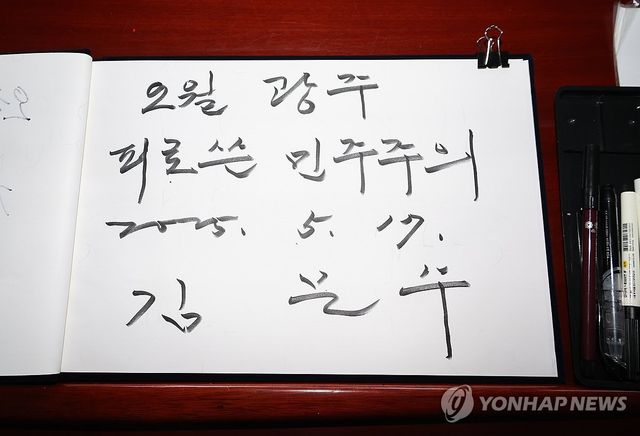 오월 광주
피로쓴 민주주의
2025. 5. 17.
김 문 수
YONHAP NEWS